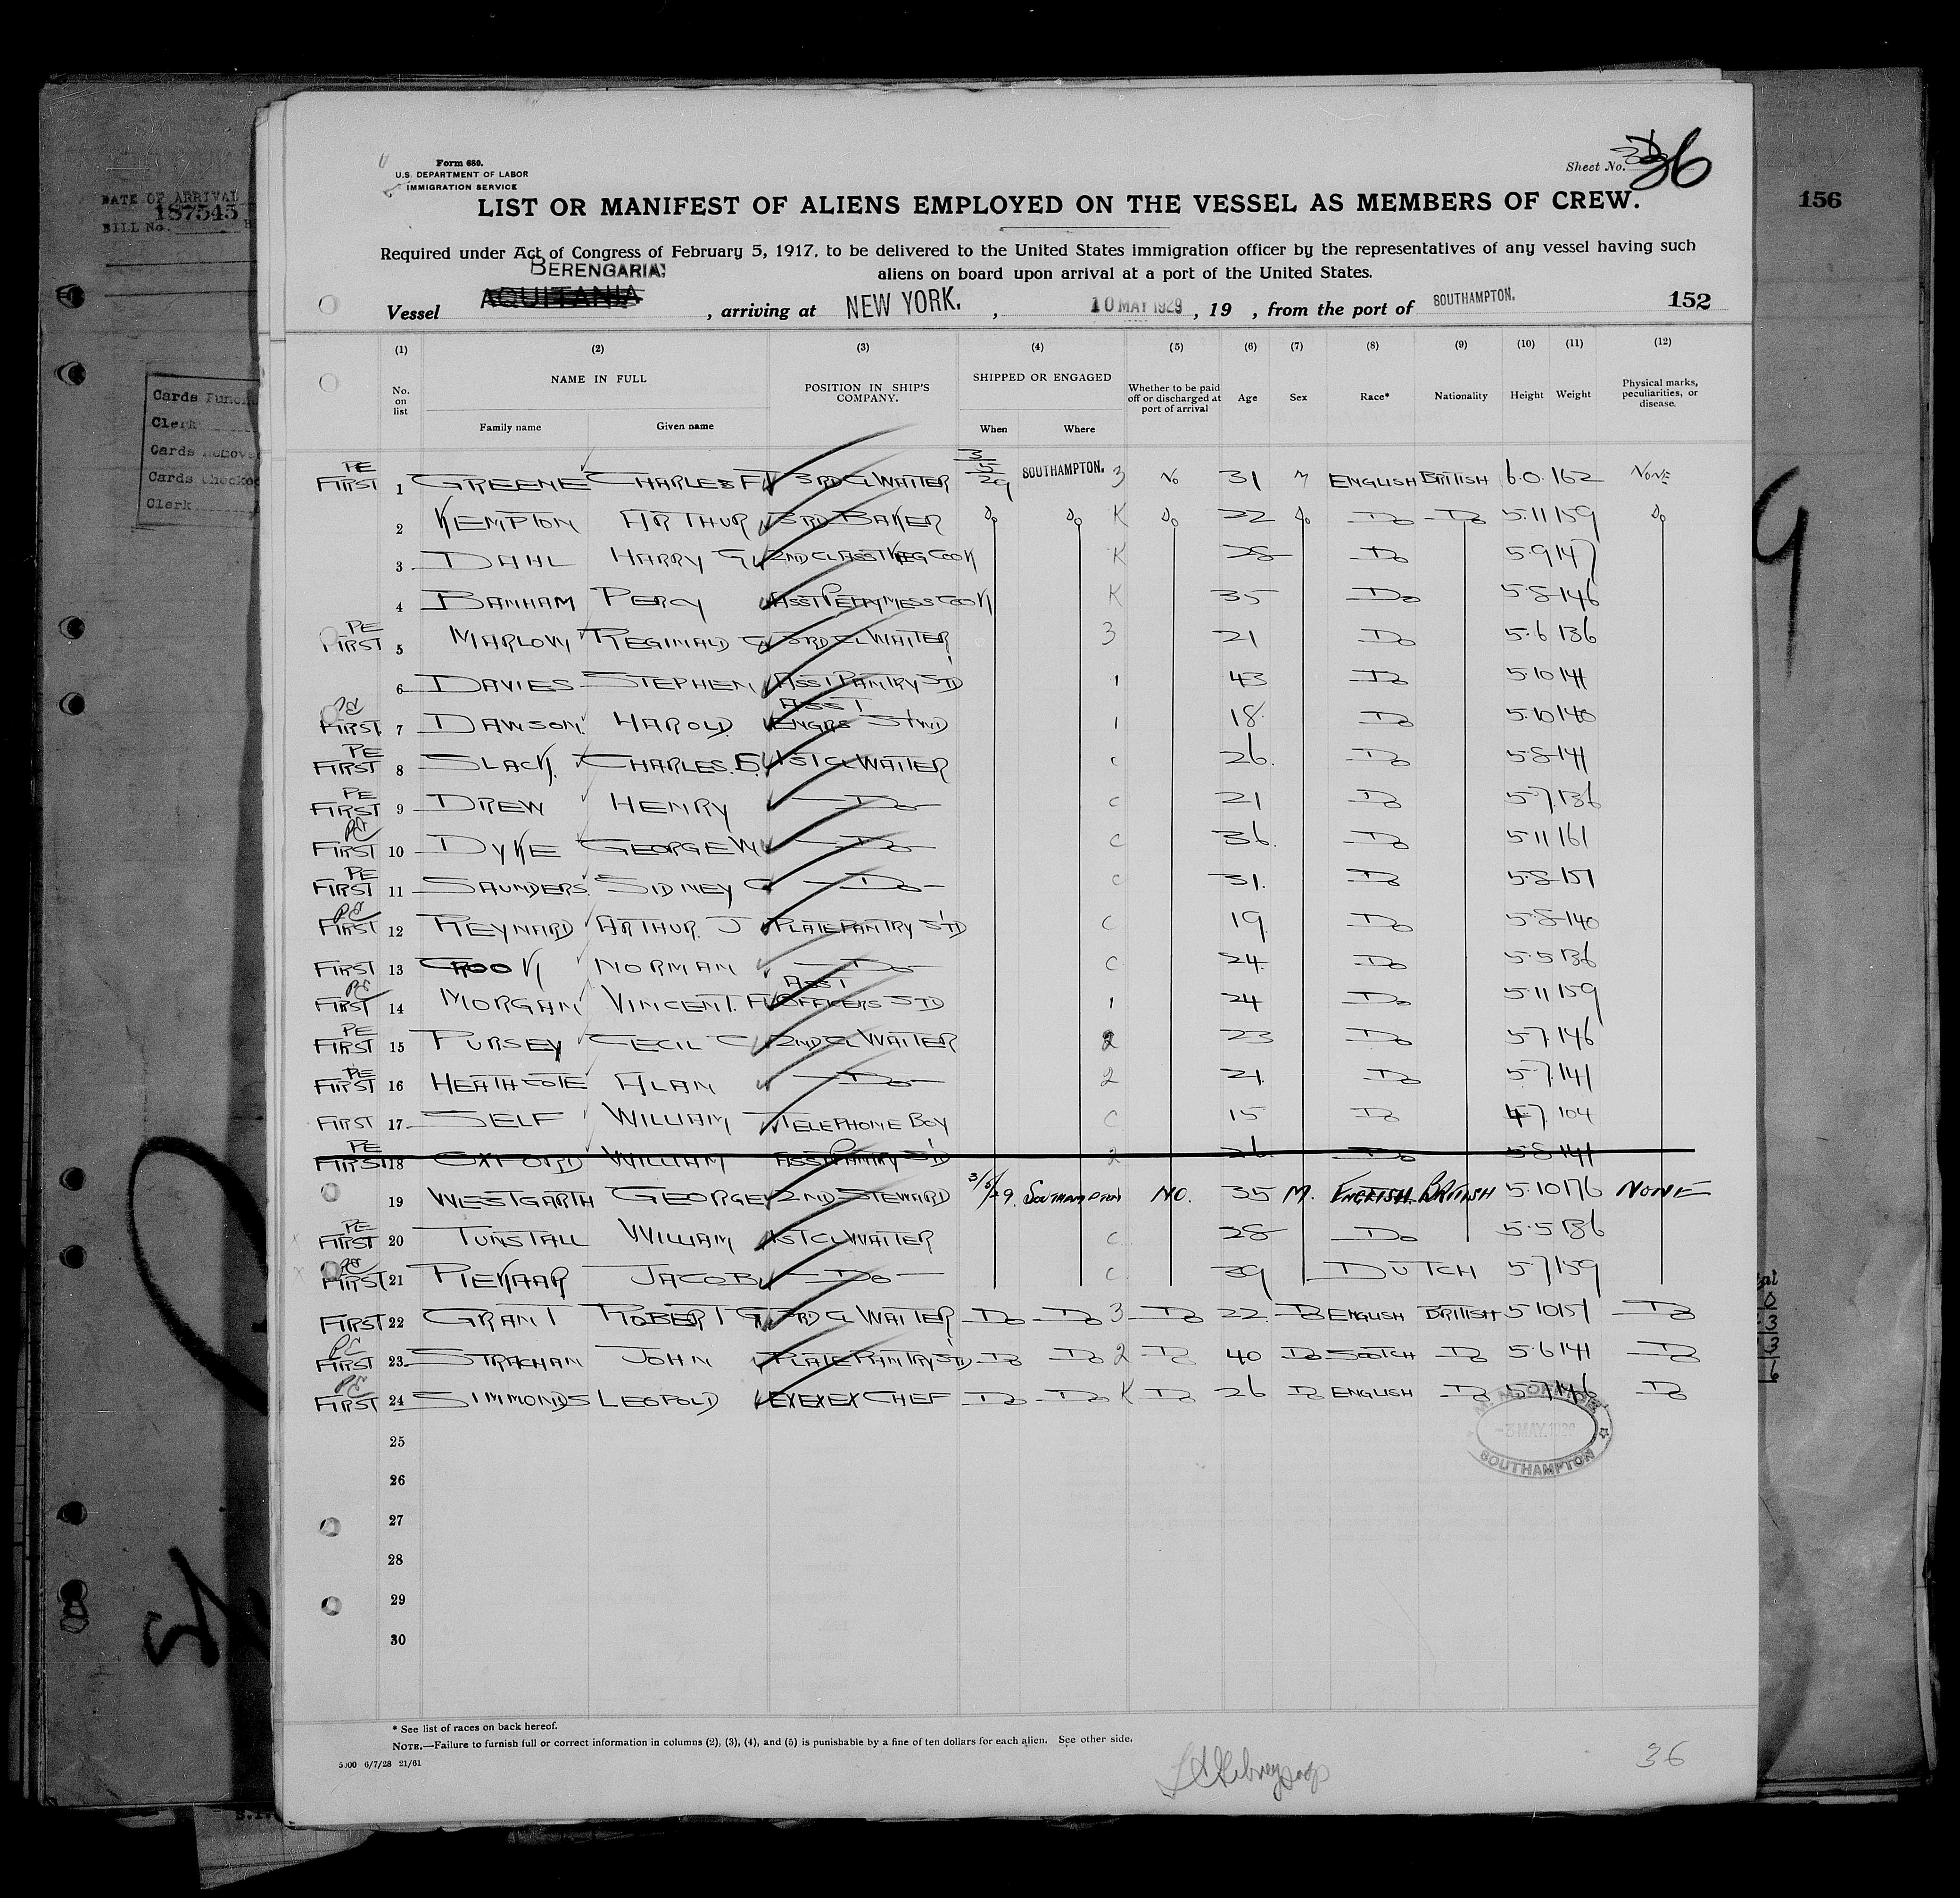 DATE OF ARRIVAL
187545
BILL No.
156
Cards Punch
Clerk
Cards Remove
Cards Checked
Clerk
Form 680.
U.S. DEPARTMENT OF LABOR
IMMIGRATION SERVICE
Sheet No. 36
LIST OR MANIFEST OF ALIENS EMPLOYED ON THE VESSEL AS MEMBERS OF CREW.
Required under Act of Congress of February 5, 1917, to be delivered to the United States immigration officer by the representatives of any vessel having such
aliens on board upon arrival at a port of the United States.
BERENGARIA
Vessel AQUITANIA, arriving at NEW YORK. , 10 MAY 1929, 19 , from the port of SOUTHAMPTON. 152
(1) (2) (3) (4) (5) (6) (7) (8) (9) (10) (11) (12)
No. on list NAME IN FULL Family name Given name POSITION IN SHIP'S COMPANY. SHIPPED OR ENGAGED When Where Whether to be paid off or discharged at port of arrival Age Sex Race* Nationality Height Weight Physical marks, peculiarities, or disease.
PE FIRST 1 GREENE CHARLES F 3RD CL WAITER 3/5/29 SOUTHAMPTON. 3 No 31 M ENGLISH BRITISH 6.0. 162 NONE
2 KEMPTON ARTHUR 3RD BAKER Do Do K Do 22 Do Do Do 5.11 159 Do
3 DAHL HARRY G 2ND CLASS VEG COOK K 28 Do 5.9 147
4 BANHAM PERCY ASST PETTY MESS COOK K 35 Do 5.8 146
PE FIRST 5 MARLOW REGINALD C 3RD CL WAITER 3 21 Do 5.6 136
6 DAVIES STEPHEN ASST PANTRY STD 1 43 Do 5.10 141
PE FIRST 7 DAWSON HAROLD ASST ENGRS STWD 1 18 Do 5.10 140
PE FIRST 8 SLACK. CHARLES. E. 1ST CL WAITER C 26. Do 5.8 141
PE FIRST 9 DREW HENRY Do C 21 Do 5.7. 136
PE FIRST 10 DYKE GEORGE W Do C 36. Do 5.11 161
PE FIRST 11 SAUNDERS SIDNEY C Do C 31. Do 5.8 151
PE FIRST 12 REYNARD ARTHUR. J PLATE PANTRY STD C 19. Do 5.8 140
FIRST 13 CROOK NORMAN Do C 24 Do 5.5 136
PE FIRST 14 MORGAN VINCENT. F ASST OFFICERS STD 1 24 Do 5.11 159
PE FIRST 15 PURSEY CECIL C 2ND CL WAITER 2 23 Do 5.7. 146
PE FIRST 16 HEATHCOTE ALAN Do 2 21. Do 5.7. 141
FIRST 17 SELF WILLIAM TELEPHONE BOY C 15 Do 4.7 104
PE FIRST 18 OXFORD WILLIAM ASST PANTRY STD 2 26 Do 5.8 141
19 WESTGARTH GEORGE 2ND STEWARD 3/5/29. SOUTHAMPTON NO. 35 M. ENGLISH. BRITISH 5.10 176 NONE
PE FIRST 20 TUNSTALL WILLIAM 1ST CL WAITER C 28 Do 5.5 136
PE FIRST 21 PIEKAAR JACOB Do C 39 DUTCH 5.7 159
FIRST 22 GRANT ROBERT G 3RD CL WAITER Do Do 3 Do 22. Do ENGLISH BRITISH 5.10 151 Do
PE FIRST 23 STRACHAN JOHN PLATE PANTRY STD Do Do 2 Do 40 Do SCOTCH Do 5.6 141 Do
PE FIRST 24 SIMMONDS LEOPOLD EXEXEX CHEF Do Do K Do 26 Do ENGLISH Do 5.7 146 Do
25
-3 MAY. 1929
SOUTHAMPTON
26
27
28
29
30
* See list of races on back hereof.
NOTE.—Failure to furnish full or correct information in columns (2), (3), (4), and (5) is punishable by a fine of ten dollars for each alien. See other side.
5000 6/7/28 21/61
36